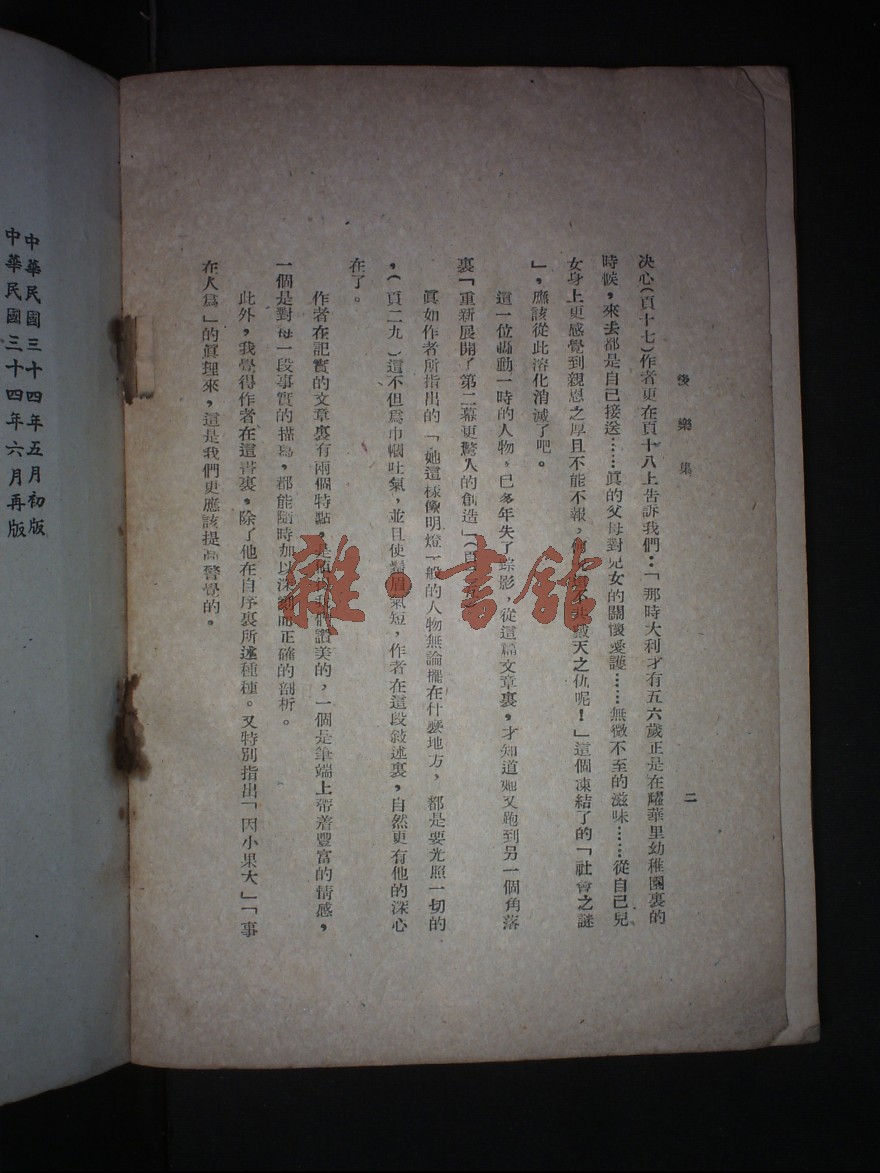 後樂集
二
决心(頁十七)作者更在頁十八上告訴我們:「那時大利才有五六歲正是在耀華里幼稚園裏的
時候,來去都是自己接送……眞的父母對兒女的關懷愛護……無微不至的滋味……從自己兒
女身上更感覺到親恩之厚且不能不報,何况還不共戴天之仇呢!」這個凍結了的「社會之謎
」,應該從此溶化消滅了吧。
這一位轟動一時的人物,已多年失了踪影,從這篇文章裏,才知道她又跑到另一個角落
裏「重新展開了第二幕更驚人的創造」(頁
眞如作者所指出的「她這樣像明燈一般的人物無論擺在什麽地方,都是要光照一切的
,(頁二九)這不但爲巾幗吐氣,並且使鬚眉氣短,作者在這段敍述裏,自然更有他的深心
在了。
作者在記實的文章裏有兩個特點,是値得我們讚美的,一個是筆端上帶着豐富的情感,
一個是對每一段事實的描寫,都能隨時加以深刻而正確的剖析。
此外,我覺得作者在這書裏,除了他在自序裏所述種種。又特別指出「因小果大」「事
在人爲」的眞理來,這是我們更應該提高警覺的。
中華民國三十四年五月初版
中華民國三十四年六月再版
雜·書館